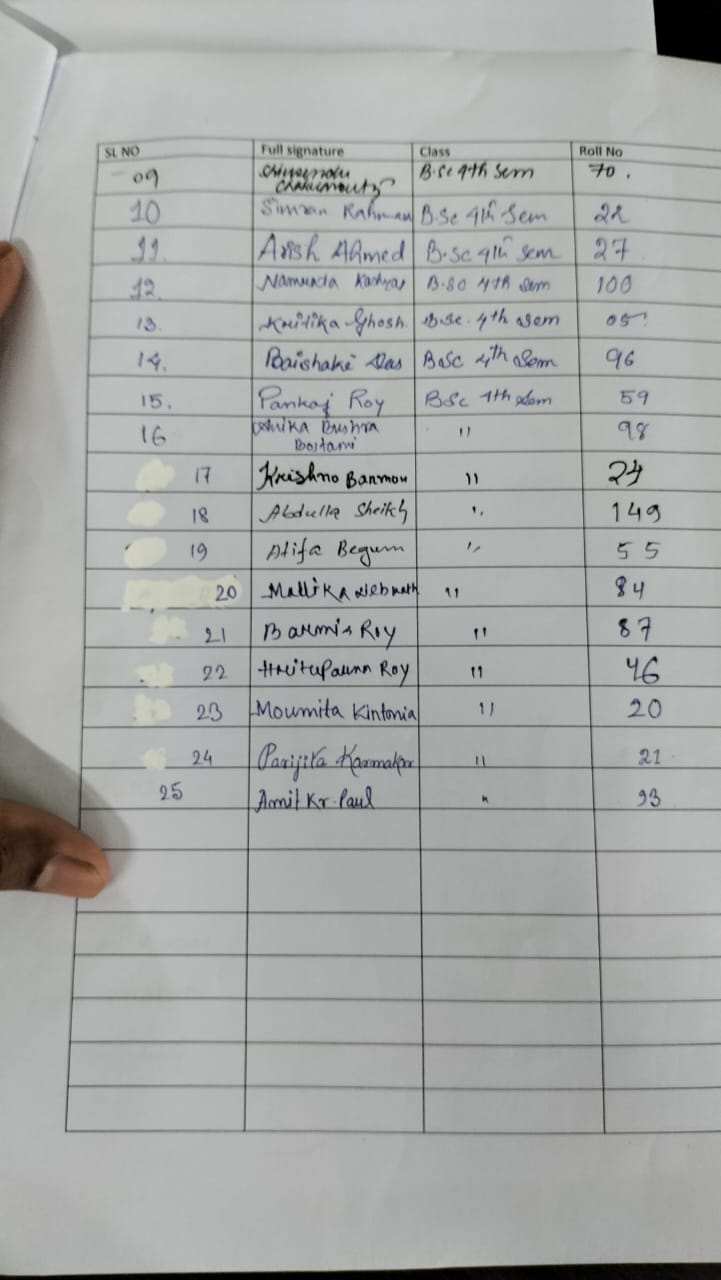 SL NO Full signature Class Roll No
09 B.Sc 4th Sem 70.
10 Simran Rahman B.Sc 4th Sem 22
11. Arish Ahmed B.Sc 4th Sem 27
12. Namrata B.SC 4th Sem 100
13. Kritika Ghosh. B.Sc. 4th Sem 05
14. Baishaki Das B.Sc 4th Sem 96
15. Pankaj Roy B.Sc 4th Sem 59
16 Anika Bushra " 98
Bostami
17 Krishno Barmon " 24
18 Abdulla Sheikh " 149
19 Atifa Begum " 55
20 Mallika Debnath " 84
21 Roy " 87
22 Roy " 46
23 Moumita Kintonia " 20
24 Parijita Karmakar " 21
25 Amit Kr. Paul " 93